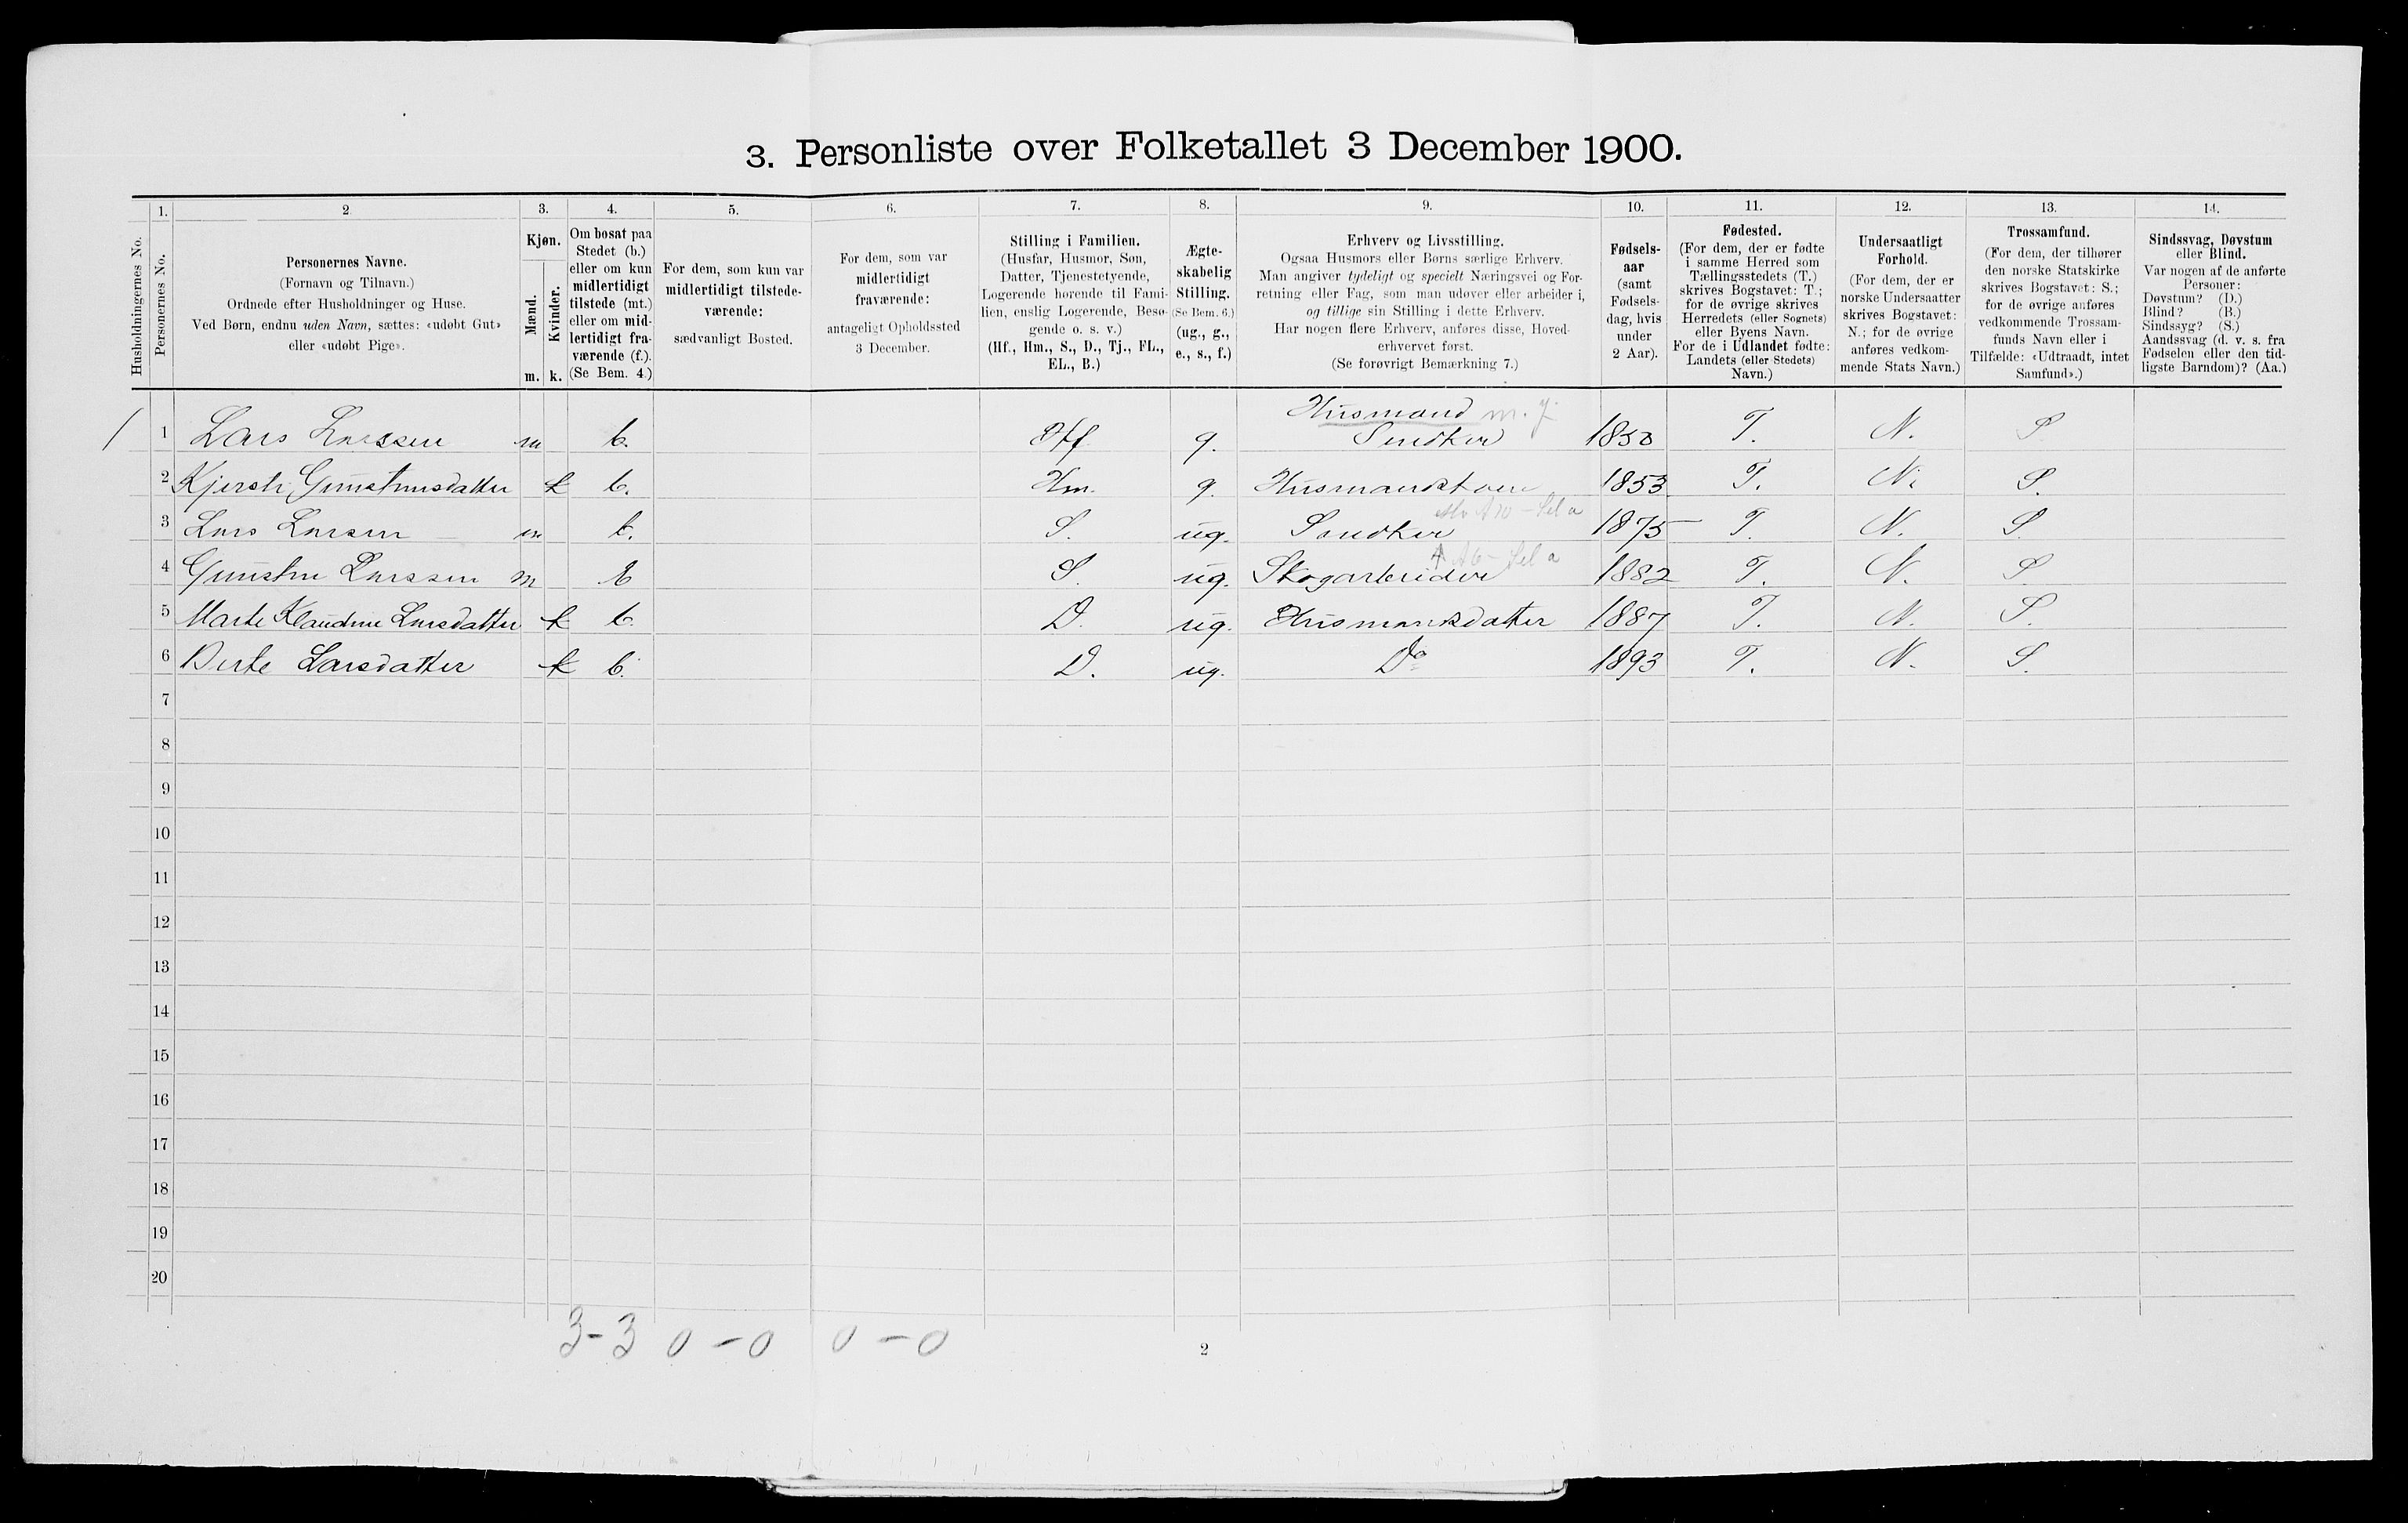 3. Personliste over Folketallet 3 December 1900.
Husholdningernes No.
1.
Personernes No.
2
Personernes Navne.
(Fornavn og Tilnavn.)
Ordnede efter Husholdninger og Huse.
Ved Børn, endnu uden Navn, sættes: «udøbt Gut»
eller «udøbt Pige».
3.
Kjøn.
Mænd.
Kvinder.
m. k.
4.
Om bosat paa
Stedet (b.)
eller om kun
midlertidigt
tilstede (mt.)
eller om mid-
lertidigt fra-
værende (f.).
(Se Bem. 4.)
5.
For dem, som kun var
midlertidigt tilstede-
værende:
sædvanligt Bosted.
6.
For dem, som var
midlertidigt
fraværende:
antageligt Opholdssted
3 December.
7.
Stilling i Familien.
(Husfar, Husmor, Søn,
Datter, Tjenestetyende,
Logerende hørende til Fami-
lien, enslig Logerende, Besø-
gende o. s. v.)
(Hf., Hm., S., D., Tj., FL.,
EL., B.)
8.
Ægte-
skabelig
Stilling.
(Se Bem. 6.)
(ug., g.,
e., s., f.)
9.
Erhverv og Livsstilling.
Ogsaa Husmors eller Børns særlige Erhverv.
Man angiver tydeligt og specielt Næringsvei og For-
retning eller Fag, som man udøver eller arbeider i,
og tillige sin Stilling i dette Erhverv.
Har nogen flere Erhverv, anføres disse, Hoved-
erhvervet først.
(Se forøvrigt Bemærkning 7.)
10.
Fødsels-
aar
(samt
Fødsels-
dag, hvis
under
2 Aar).
11.
Fødested.
(For dem, der er fødte
i samme Herred som
Tællingsstedets (T.)
skrives Bogstavet: T.;
for de øvrige skrives
Herredets (eller Sognets)
eller Byens Navn.
For de i Udlandet fødte:
Landets (eller Stedets)
Navn.)
12.
Undersaatligt
Forhold.
(For dem, der er
norske Undersaatter
skrives Bogstavet:
N.; for de øvrige
anføres vedkom-
mende Stats Navn.)
13.
Trossamfund.
(For dem, der tilhører
den norske Statskirke
skrives Bogstavet: S.;
for de øvrige anføres
vedkommende Trossam-
funds Navn eller i
Tilfælde: «Udtraadt, intet
Samfund».)
14.
Sindssvag, Døvstum
eller Blind.
Var nogen af de anførte
Personer:
Døvstum? (D.)
Blind? (B.)
Sindssyg? (S.)
Aandssvag (d. v. s. fra
Fødselen eller den tid-
ligste Barndom)? (Aa.)
Husmand m. j.
1 Lars Larssen m b. Hf g. Snedker T. N. S.
2 Kjersti Gunstensdatter k b. Hm. g. 1853 T. N. S.
3 Lars Larsen m b. S. ug. Snedker 1875 T. N. S.
4 Gunsten Larssen m b S. ug. Skogarbeider 1882 T. N. S.
5 Marte Klaudine Larsdatter k b. D. ug. Husmandsdatter 1887 T. N. S.
6 Berte Larsdatter k b. D. ug. Do 1893 T. N. S.
7
8
9
10
11
12
13
14
15
16
17
18
19
20
3-3 0-0 0-0
2